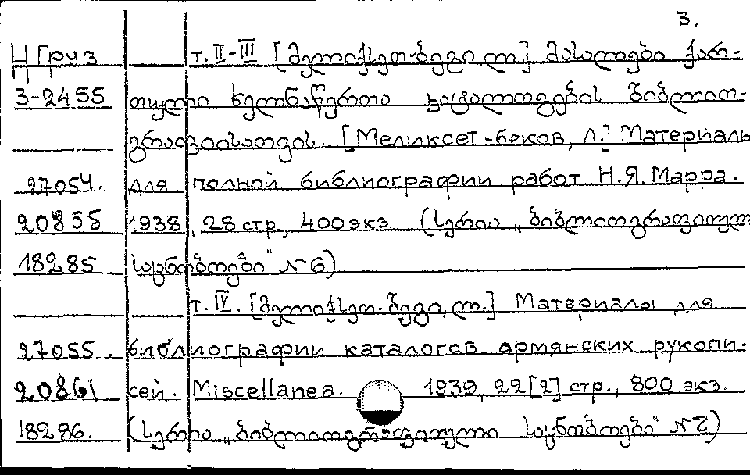 3.
Ц Груз т. II-III [მელიქსეთ-ბეგი ლ.] მასალები ქარ-
3-2455 თული ხელნაწერთა კატალოგების ბიბლიო-
გრაფიისათვის. [Меликсет-беков, Л.] Материалы
27054. для полной библиографии работ Н.Я. Марра.
20855 1938, 28 стр, 400 экз (სერია „ბიბლიოგრაფიული
18285 საცნობოები" № 6)
т. IV. [მელიქსეთ-ბეგი, ლ.] Материалы для
27055. библиографии каталогов армянских рукопи-
20861 сей. Miscellanea. 1939, 22 [2] стр., 800 экз.
18286. (სერია „ბიბლიოგრაფიული საცნობოები" № 7)